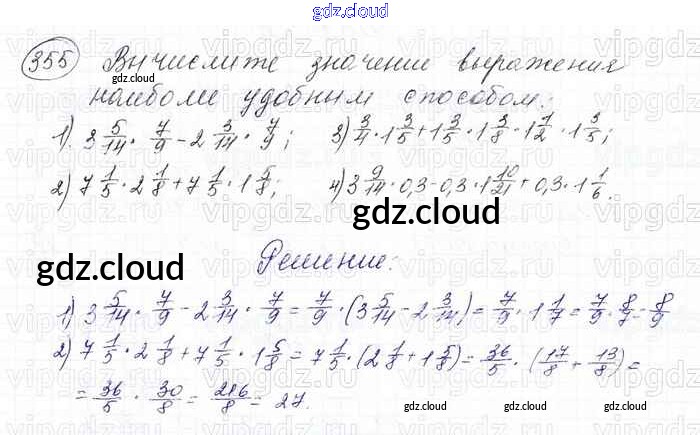 gdz.cloud
355 Вычислите значение выражения
gdz.cloud
наиболи удобным способом:
1). 3 5/14 · 7/9 - 2 3/14 · 7/9; 3) 3/4 · 1 3/5 + 1 3/5 · 1 3/8 - 1 1/2 · 1 3/5;
2) 7 1/5 · 2 1/8 + 7 1/5 · 1 5/8; 4) 3 9/14 · 0,3 - 0,3 · 1 10/21 + 0,3 · 1 1/6.
gdz.cloud
gdz.cloud
Решение:
1) 3 5/14 · 7/9 - 2 3/14 · 7/9 = 7/9 · (3 5/14 - 2 3/14) = 7/9 · 1 1/7 = 7/9 · 8/7 = 8/9
2) 7 1/5 · 2 1/8 + 7 1/5 · 1 5/8 = 7 1/5 · (2 1/8 + 1 5/8) = 36/5 · (17/8 + 13/8) =
= 36/5 · 30/8 = 216/8 = 27.
gdz.cloud gdz.cloud